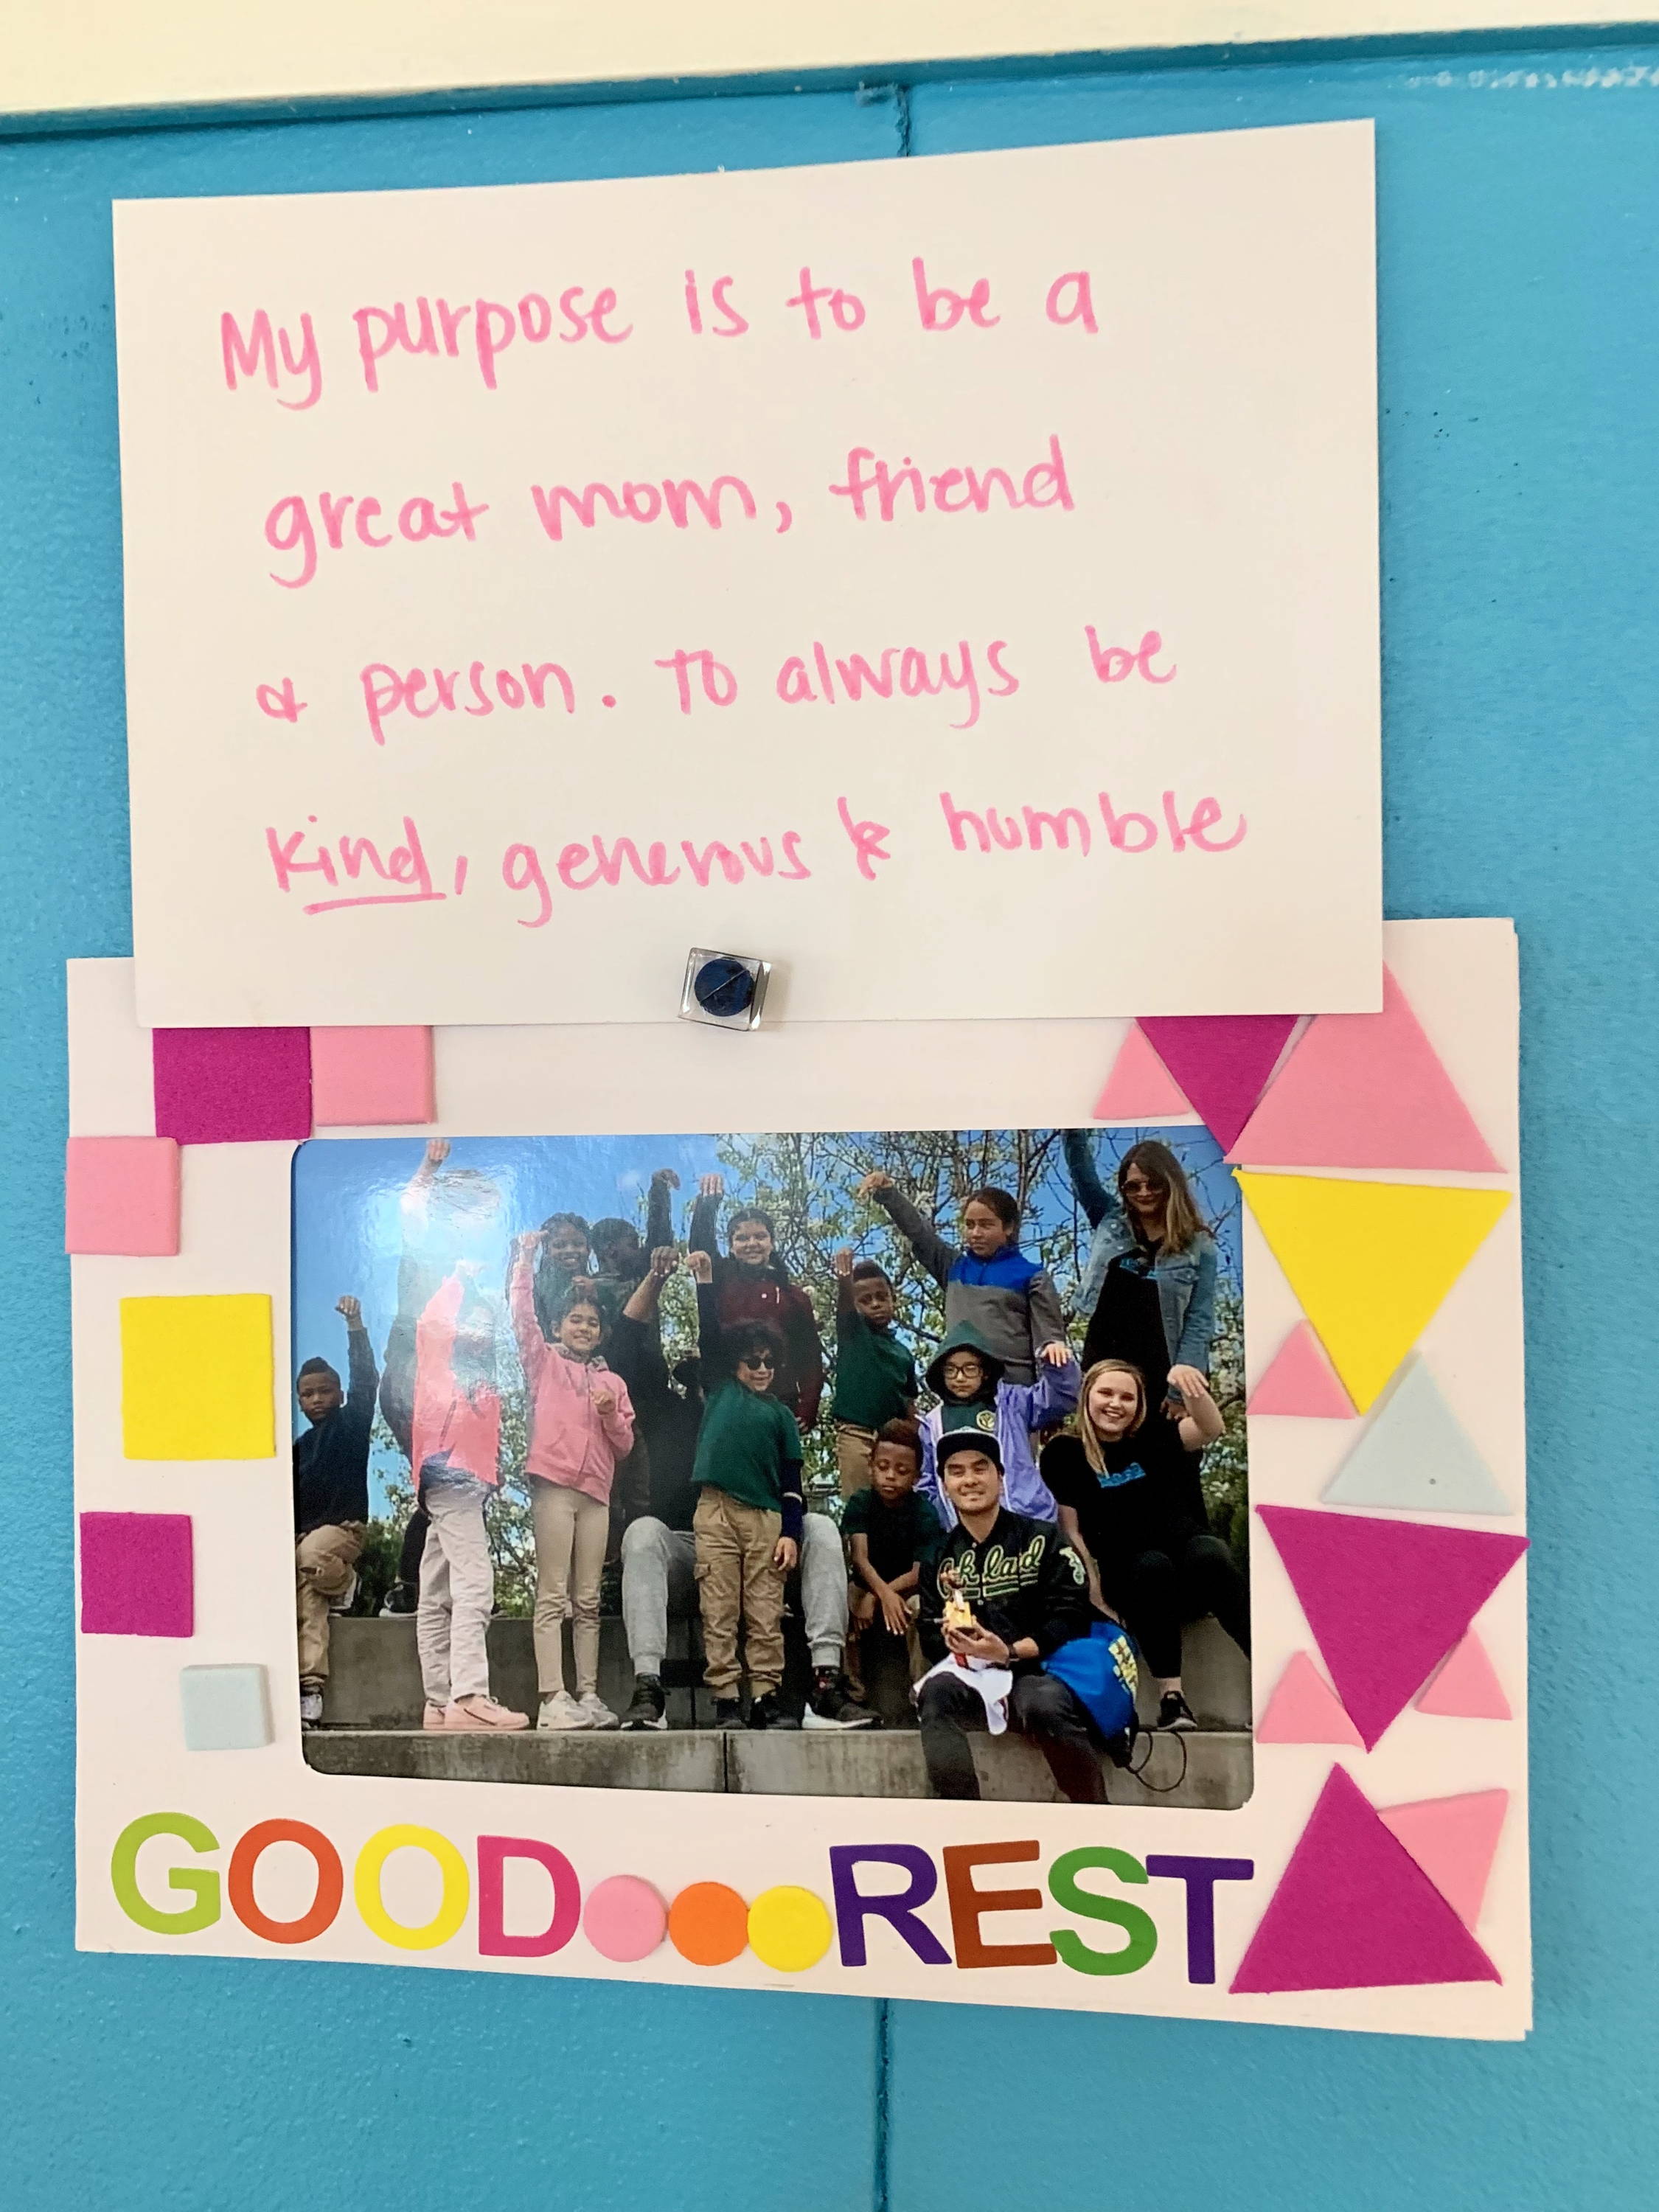 My purpose is to be a
great mom, friend
& person. To always be
kind, generous & humble
Oakland
GOOD...REST